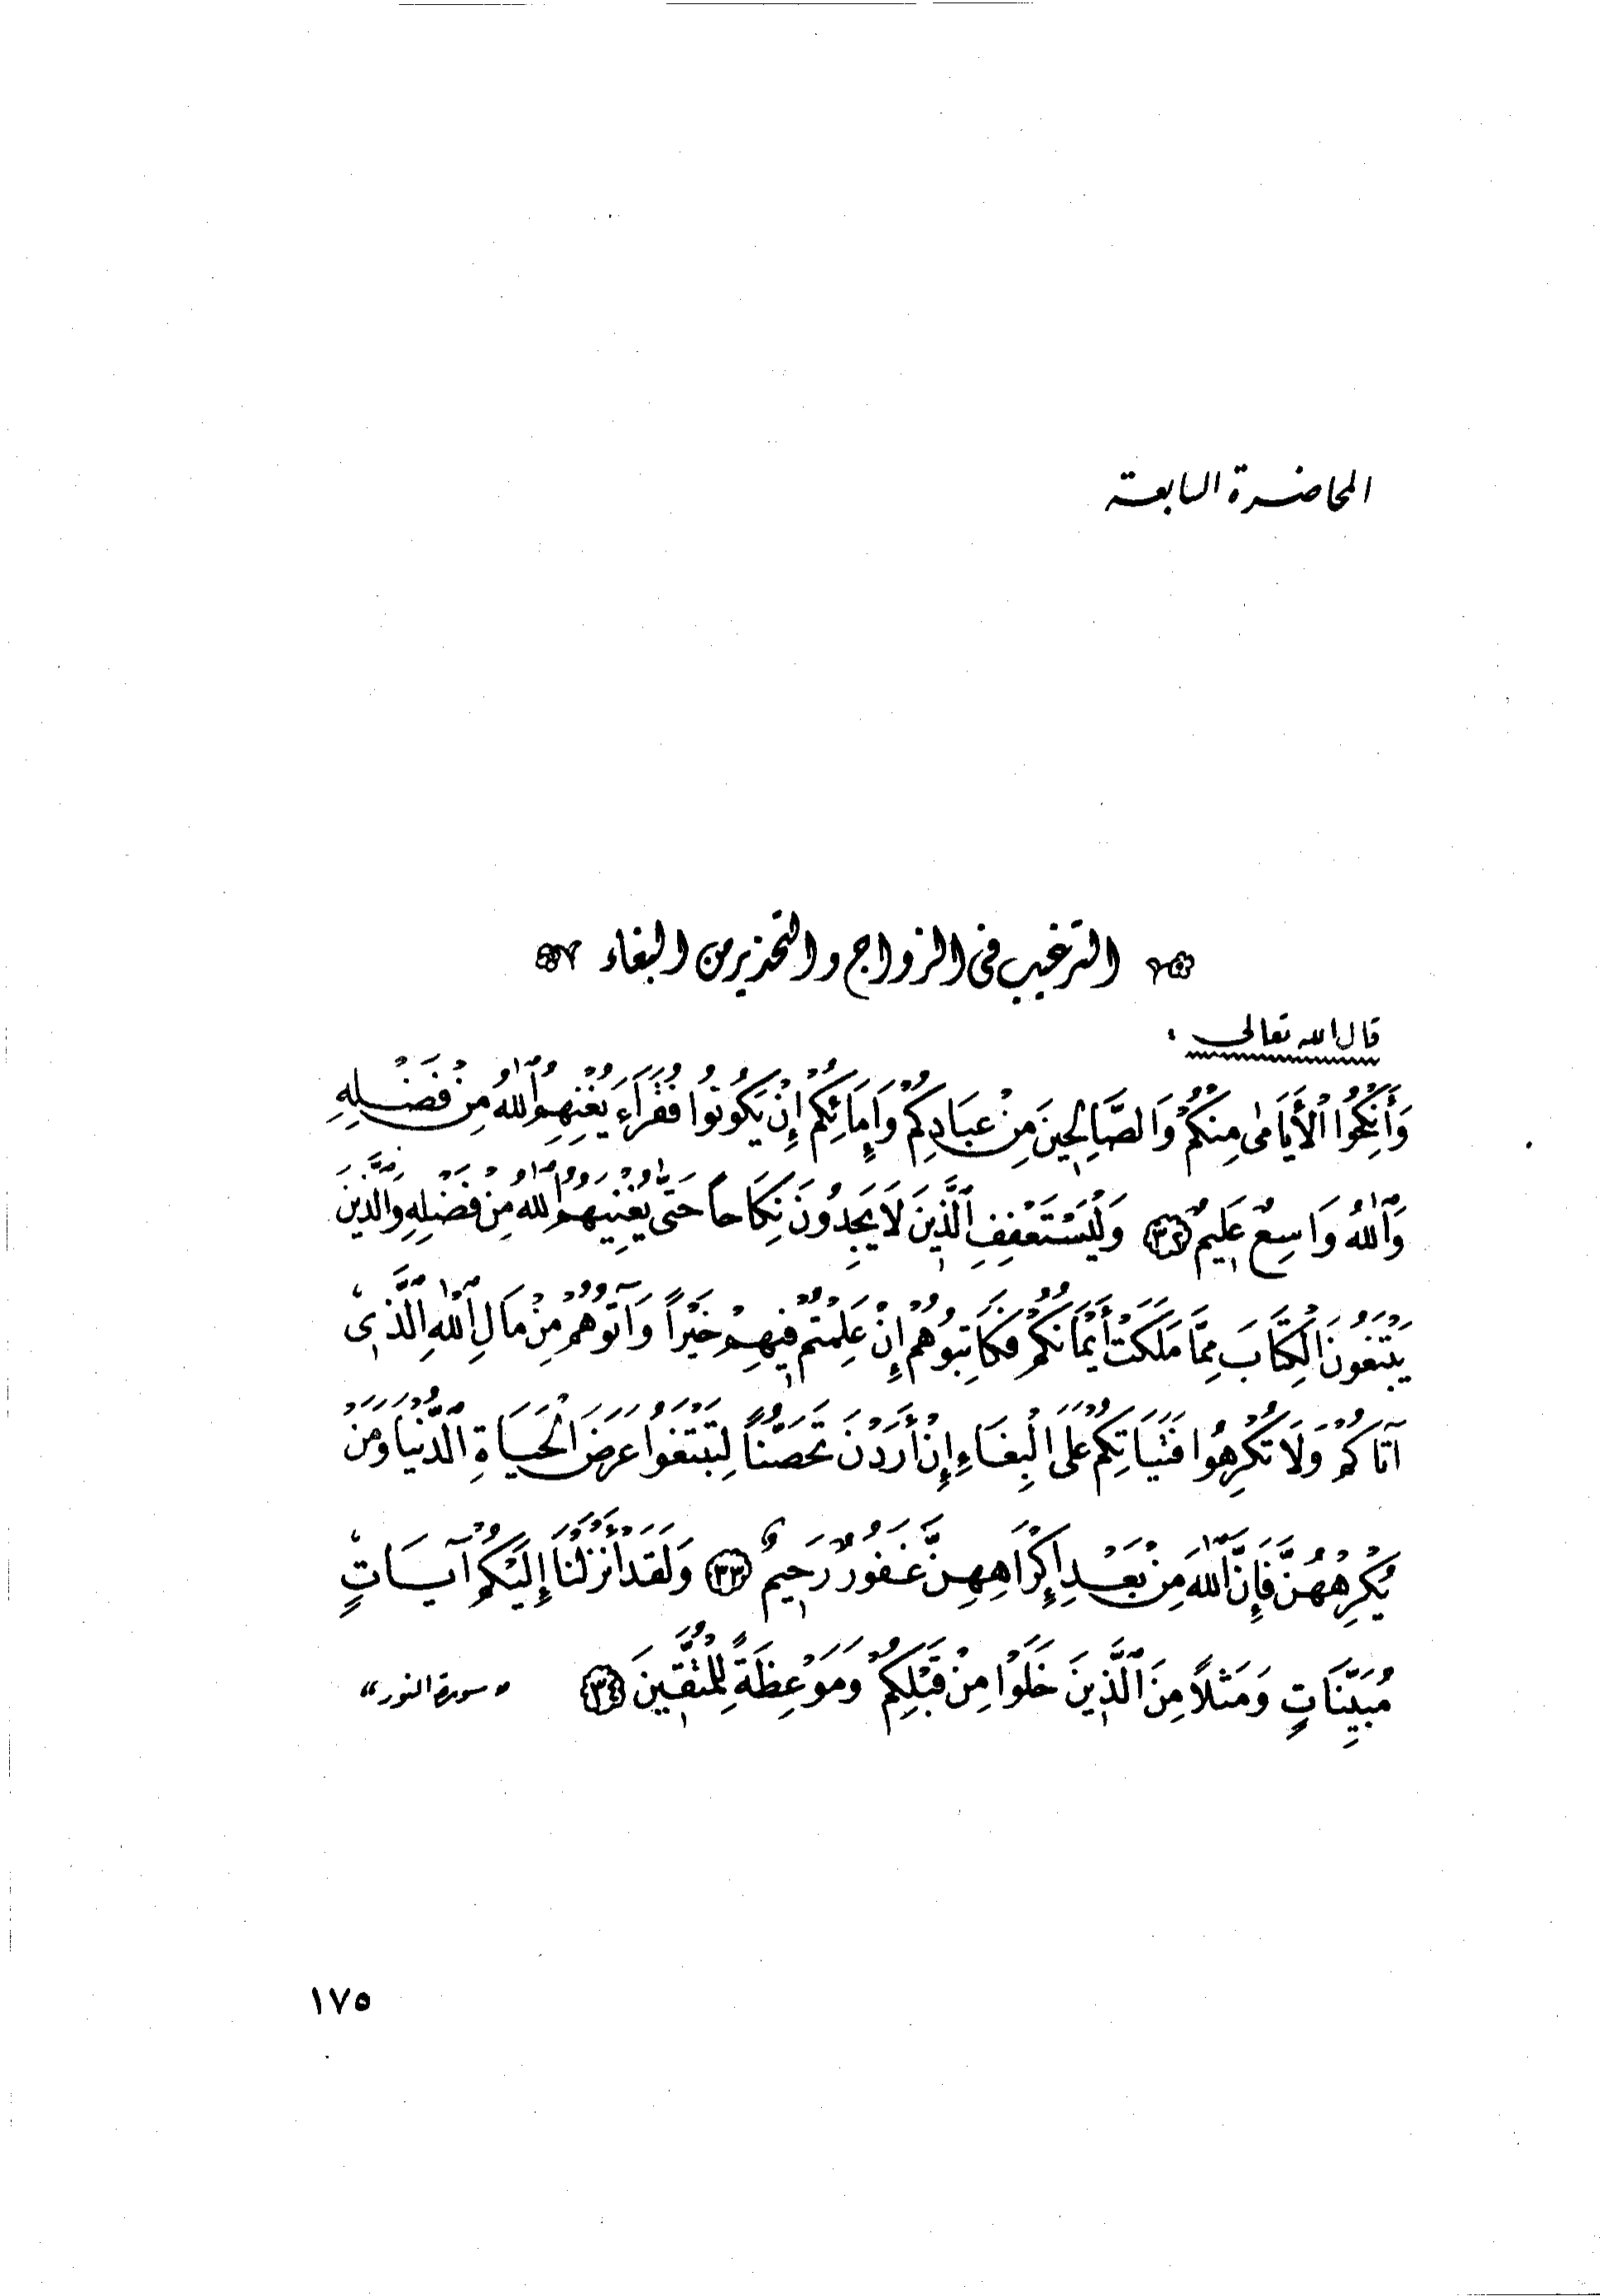 المحاضرة السابعة
الترغيب فى الزواج والتحذير من البغاء
قال الله تعالى :
وَأَنكِحُوا الْأَيَامَىٰ مِنكُمْ وَالصَّالِحِينَ مِنْ عِبَادِكُمْ وَإِمَائِكُمْ إِنْ يَكُونُوا فُقَرَاءَ يُغْنِهِمُ اللهُ مِنْ فَضْلِهِ
وَاللهُ وَاسِعٌ عَلِيمٌ ﴿٣٢﴾ وَلْيَسْتَعْفِفِ الَّذِينَ لَا يَجِدُونَ نِكَاحاً حَتَّى يُغْنِيَهُمُ اللهُ مِنْ فَضْلِهِ وَالَّذِينَ
يَبْتَغُونَ الْكِتَابَ مِمَّا مَلَكَتْ أَيْمَانُكُمْ فَكَاتِبُوهُمْ إِنْ عَلِمْتُمْ فِيهِمْ خَيْراً وَآتُوهُمْ مِنْ مَالِ اللهِ الَّذِي
آتَاكُمْ وَلَا تُكْرِهُوا فَتَيَاتِكُمْ عَلَى الْبِغَاءِ إِنْ أَرَدْنَ تَحَصُّناً لِتَبْتَغُوا عَرَضَ الْحَيَاةِ الدُّنْيَا وَمَنْ
يُكْرِهْهُنَّ فَإِنَّ اللهَ مِنْ بَعْدِ إِكْرَاهِهِنَّ غَفُورٌ رَحِيمٌ ﴿٣٣﴾ وَلَقَدْ أَنْزَلْنَا إِلَيْكُمْ آيَاتٍ
مُبَيِّنَاتٍ وَمَثَلاً مِنَ الَّذِينَ خَلَوْا مِنْ قَبْلِكُمْ وَمَوْعِظَةً لِلْمُتَّقِينَ ﴿٣٤﴾ «سورة النور»
١٧٥